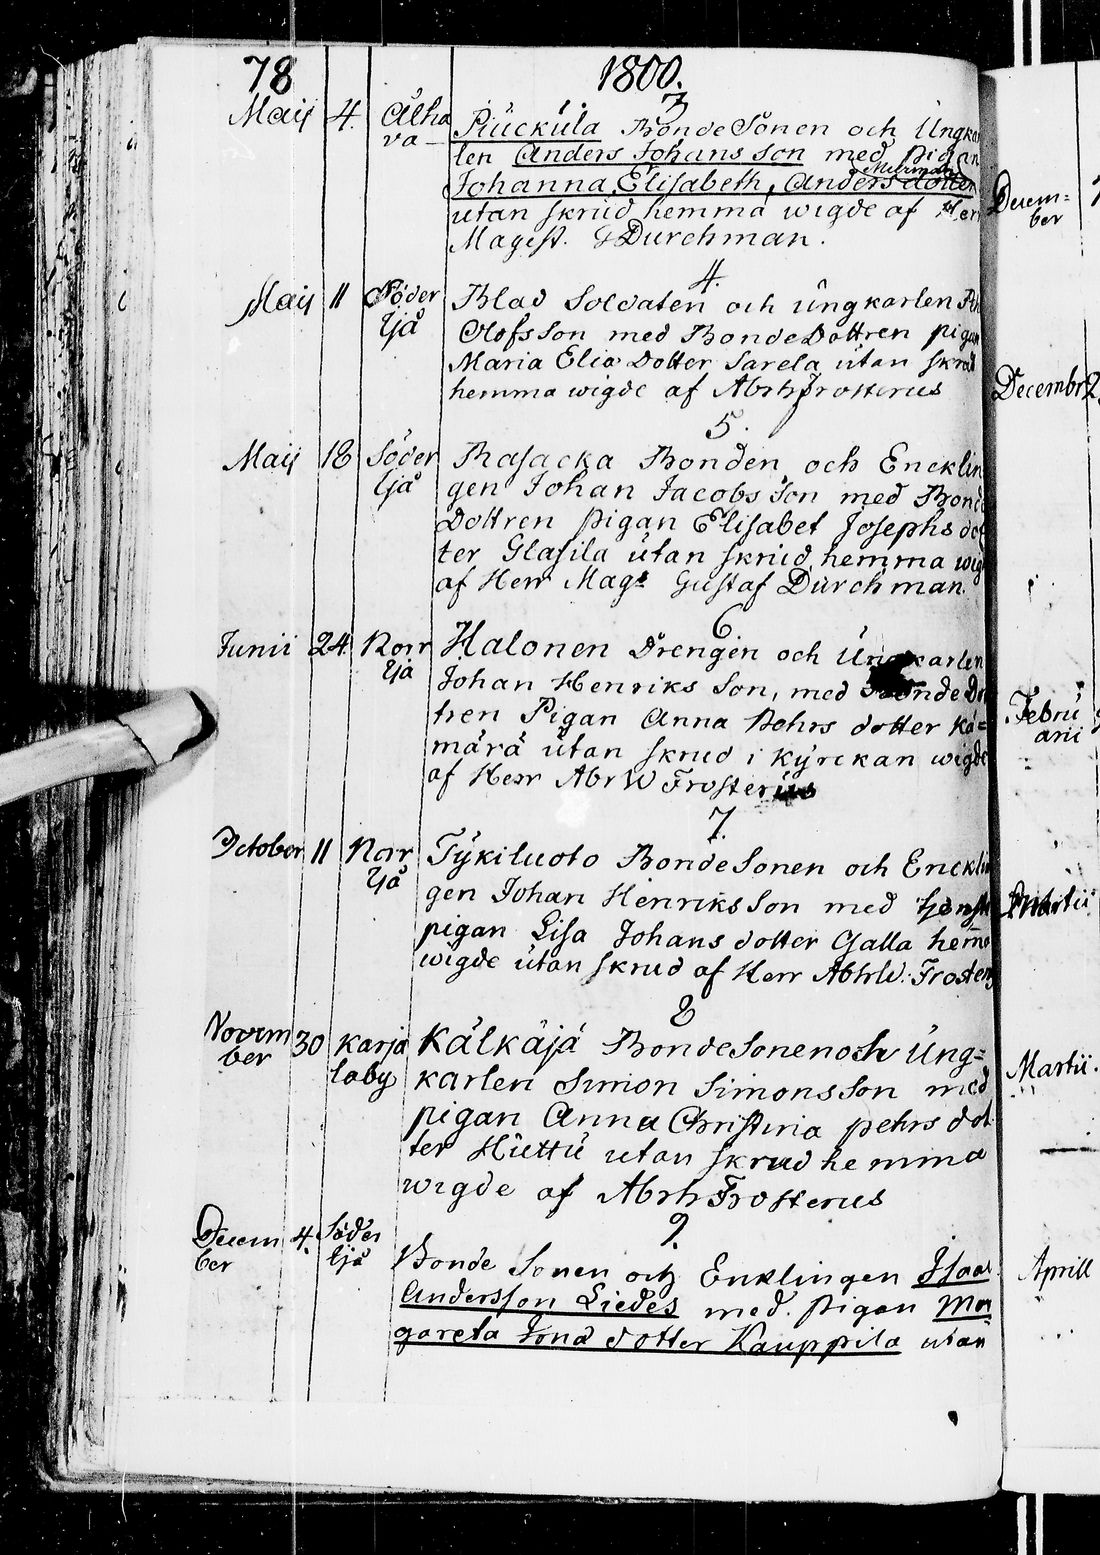 78
1800.
3
Maij 4. Älha Piückula Bonde Sönen och Ungkar
va- len Anders Johans son med pigan
Murman
Johanna Elisabeth, Anders dotter
utan skrud hemma wigde af Herr
Magist. G Durchman.
4.
Maij 11 Söder Blad Soldaten och ungkarlen
ljå Olofs Son med Bonde Dottren pigan
Maria Elia Dotter Sarela utan skrud
hemma wigde af Abrh Frosterus
5.
Maij 18 Söder Rasacka Bonden och Encklin
ljå gen Johan Jacobs Son med Bonde
Dottren pigan Elisabet Josephs dot
ter Glasila utan skrud hemma wig
af Herr Mags Gustaf Durchman.
6
Junii 24. Norr Halonen Drengen och Ungkarlen
ljå Johan Henriks Son, med Bonde Dot
tren Pigan Anna Pehrs dotter Kä=
märä utan skrud i kyrckan wigde
af Herr Abr W Frosterius
7.
October 11 Norr Tykiluoto Bonde Sonen och Encklin
ljå gen Johan Henriks Son med tjenst
pigan Lisa Johans dotter Galla hema
wigde utan skrud af Herr Abh W: Froster
8
Novem 30 Karja Kälkäjä Bonde Sonen och Ung=
ber laby karlen Simon Simons Son med
pigan Anna Christina pehrs dot
ter Huttu utan skrud hemma
wigde af Abrh Frosterus
9.
Decem 4. Söder Bonde Sonen och Enklingen Isaac
ber ljå Andersson Liedes med. pigan Mar
gareta Jona dotter Kauppila utan
Decem=
ber
Decembr 2
Febru
arii
Martii
Martii.
Aprill